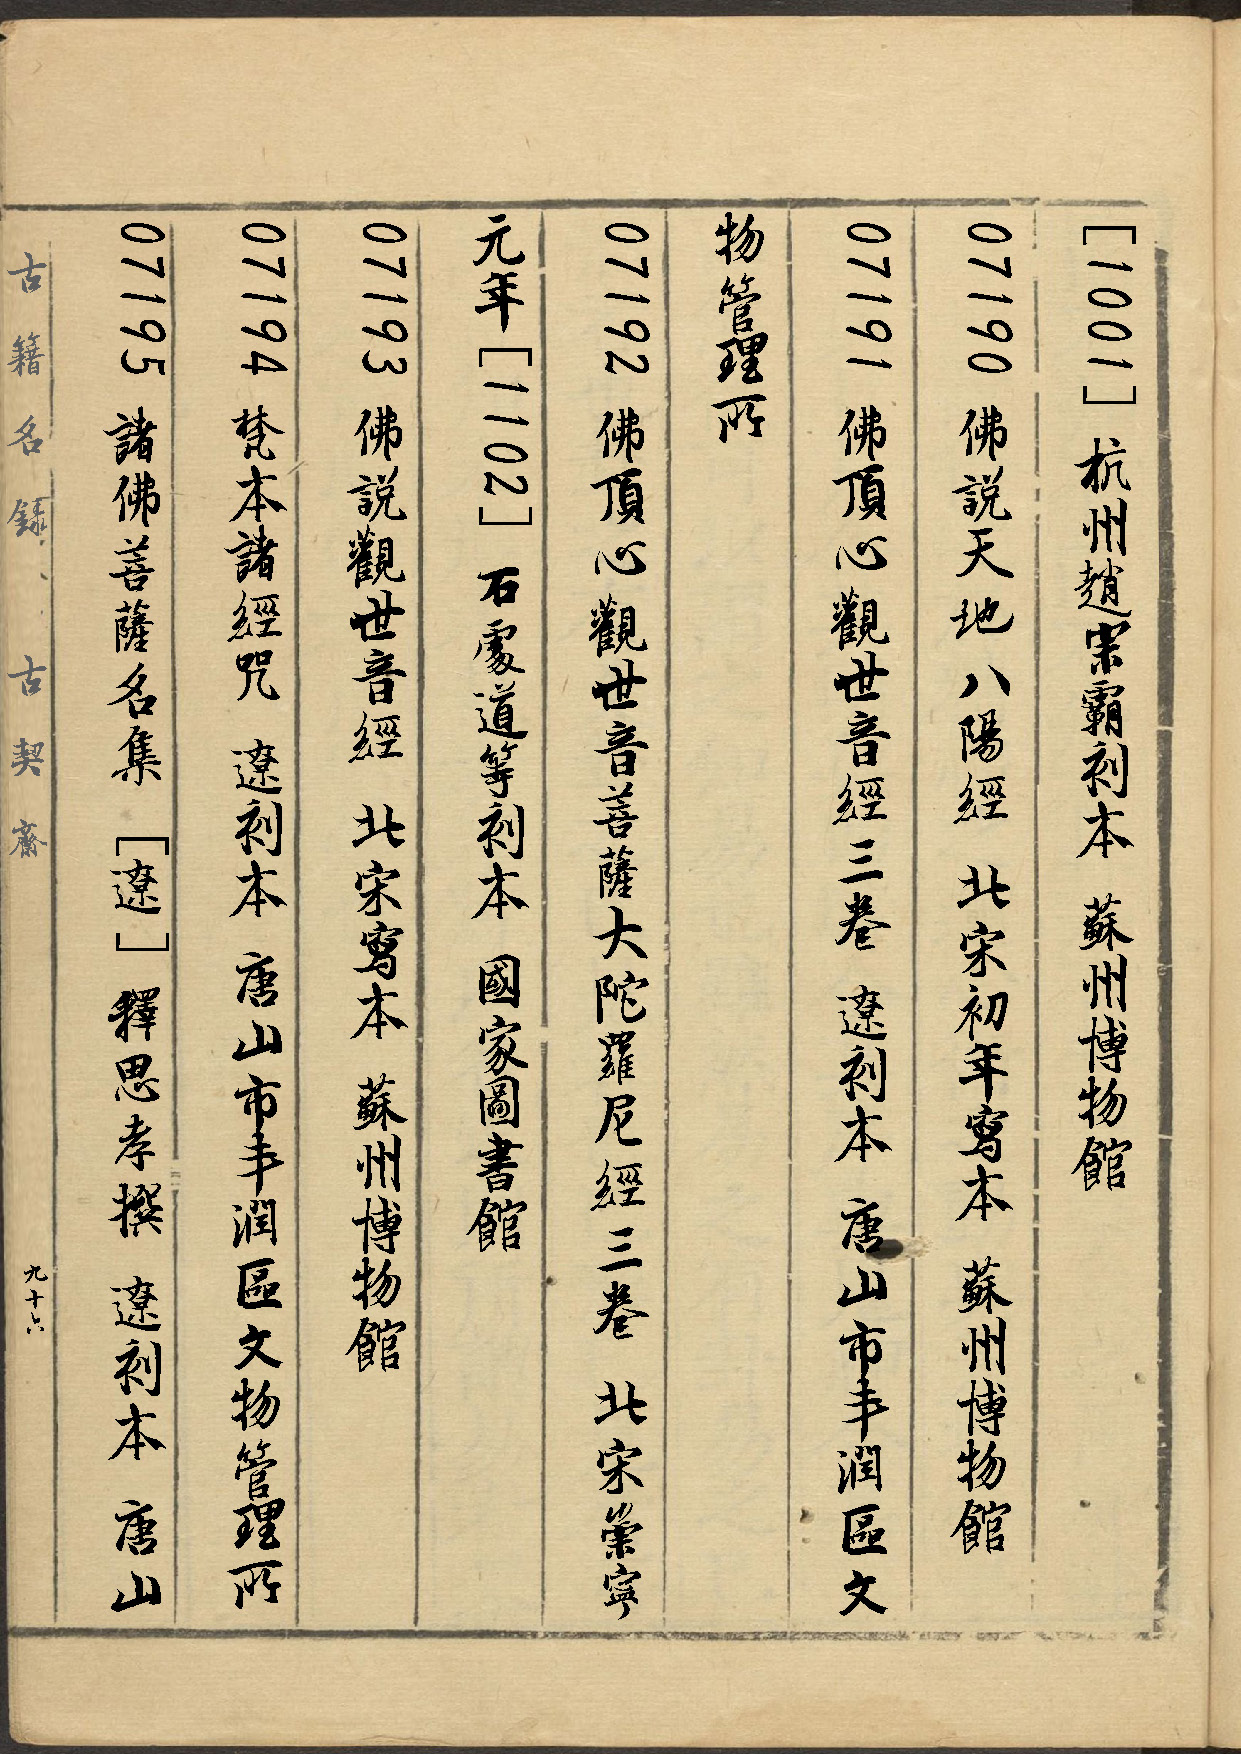 [1001] 杭州趙宗霸刻本 蘇州博物館
07190 佛説天地八陽經 北宋初年寫本 蘇州博物館
07191 佛頂心觀世音經三卷 遼刻本 唐山市丰潤區文
物管理所
07192 佛頂心觀世音菩薩大陀羅尼經三卷 北宋崇寧
元年[1102] 石處道等刻本 國家圖書館
07193 佛説觀世音經 北宋寫本 蘇州博物館
07194 梵本諸經咒 遼刻本 唐山市丰潤區文物管理所
07195 諸佛菩薩名集 [遼] 釋思孝撰 遼刻本 唐山
古籍名録 古契齋
九十六